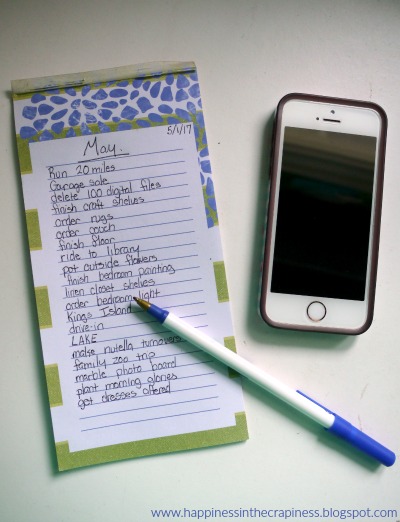 5/1/17
May.
Run 20 miles
Garage sale
delete 100 digital files
finish craft shelves
order rugs
order couch
finish floor
ride to library
pot outside flowers
finish bedroom painting
linen closet shelves
order bedroom light
Kings Island
drive-in
LAKE
make nutella turnovers
family zoo trip
marble photo board
plant morning glories
get dresses altered
www.happinessinthecrapiness.blogspot.com